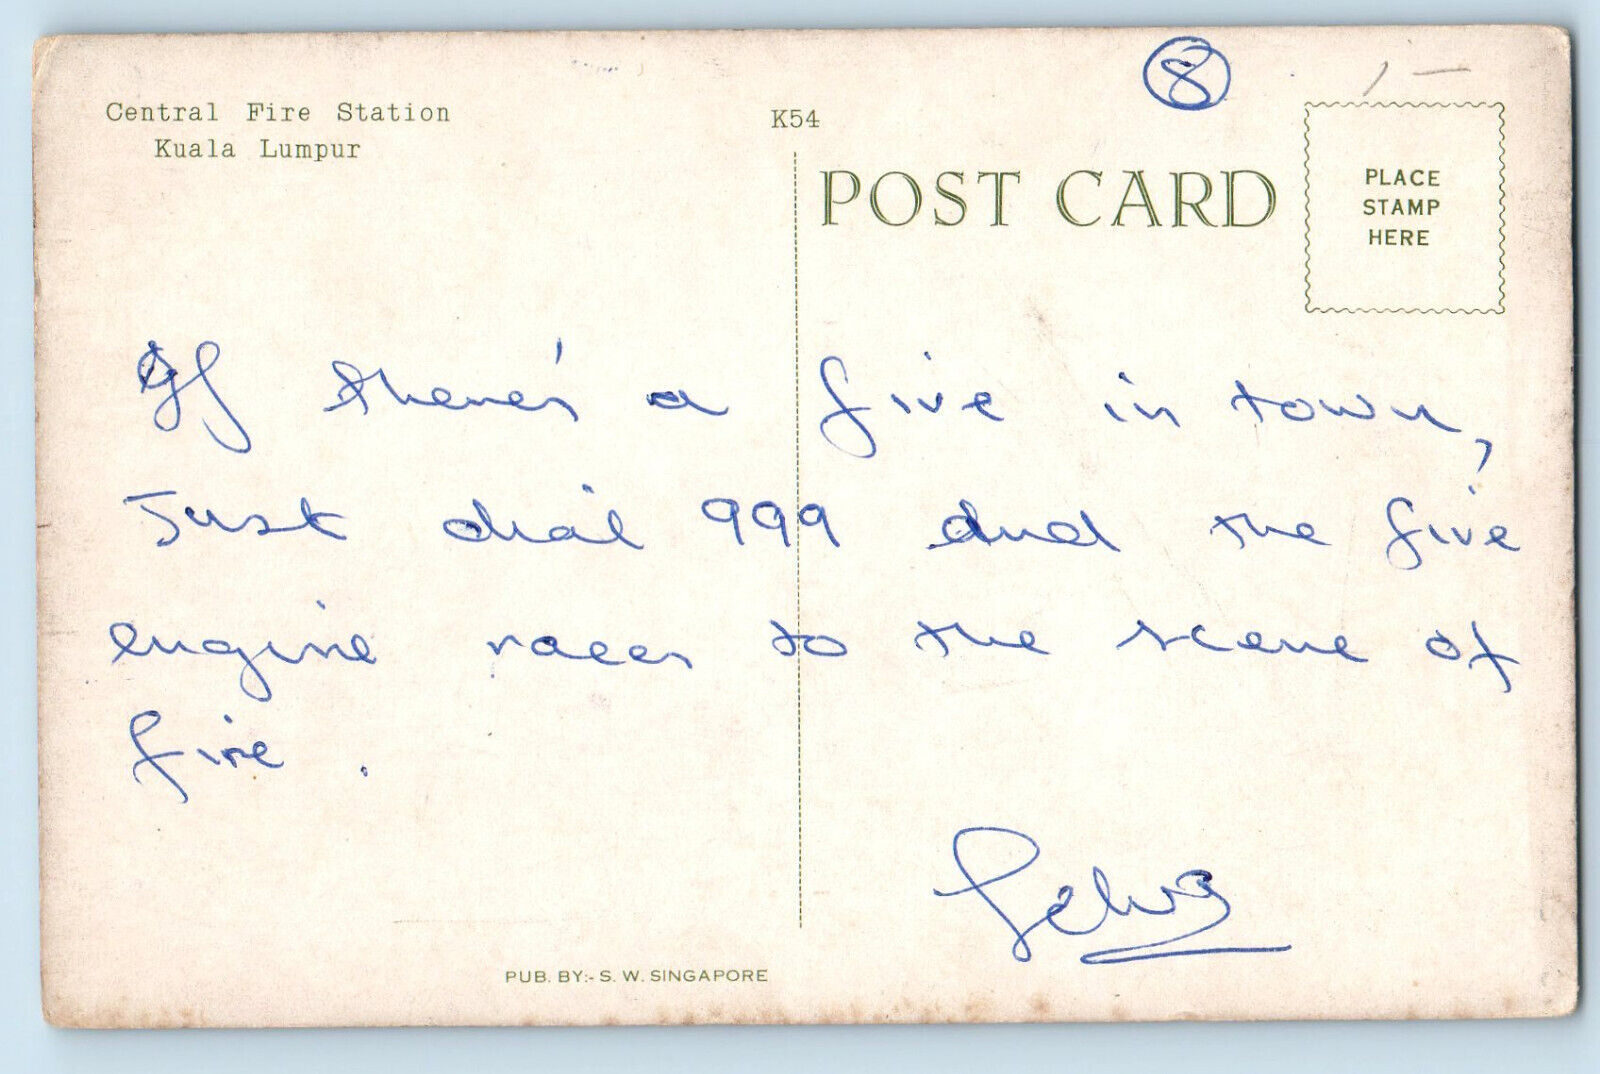 8
Central Fire Station
Kuala Lumpur
K54
POST CARD
PLACE
STAMP
HERE
If there's a fire in town,
Just dial 999 and the fire
engine races to the scene of
fire.
PUB. BY:- S. W. SINGAPORE